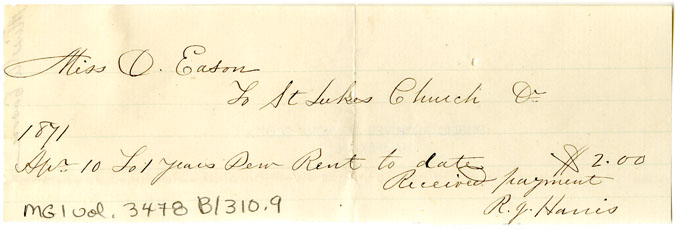 Miss O. Eason
To St Lukes Church Dr
1871
Apr. 10 To 1 years Pew Rent to date $2.00
Received payment
R. J. Harris
MG 1 vol. 3478 B/310.9